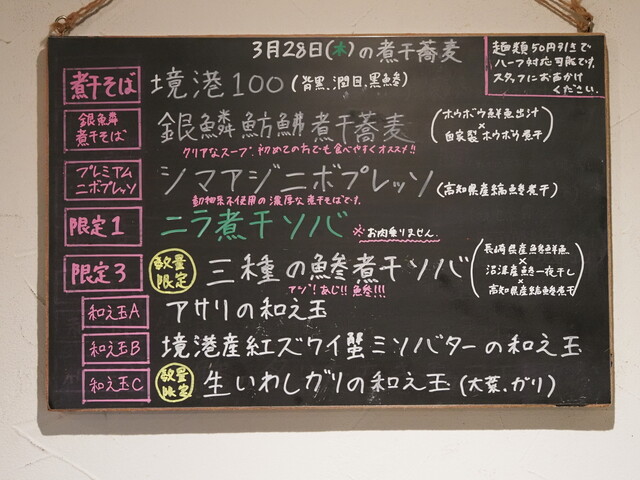 3月28日(木)の煮干蕎麦
麺類50円引きで
ハーフ対応可能です。
スタッフにお声かけ
ください。
煮干そば 境港100(背黒.潤目.黒鯵)
銀鱗煮干そば 銀鱗魴鮄煮干蕎麦(ホウボウ鮮魚出汁×自家製ホウボウ煮干)
クリアなスープ.初めての方でも食べやすくオススメ!!
プレミアムニボプレッソ シマアジニボプレッソ(高知県産縞鯵煮干)
動物系不使用の濃厚な煮干そばです。
限定1 ニラ煮干ソバ ※お肉乗りません。
限定3 数量限定 三種の鯵煮干ソバ(長崎県産鯵鮮魚×沼津産鯵一夜干し×高知県産縞鯵煮干)
アジ!あじ!!鯵!!!
和え玉A アサリの和え玉
和え玉B 境港産紅ズワイ蟹ミソバターの和え玉
和え玉C 数量限定 生いわしガリの和え玉(大葉.ガリ)